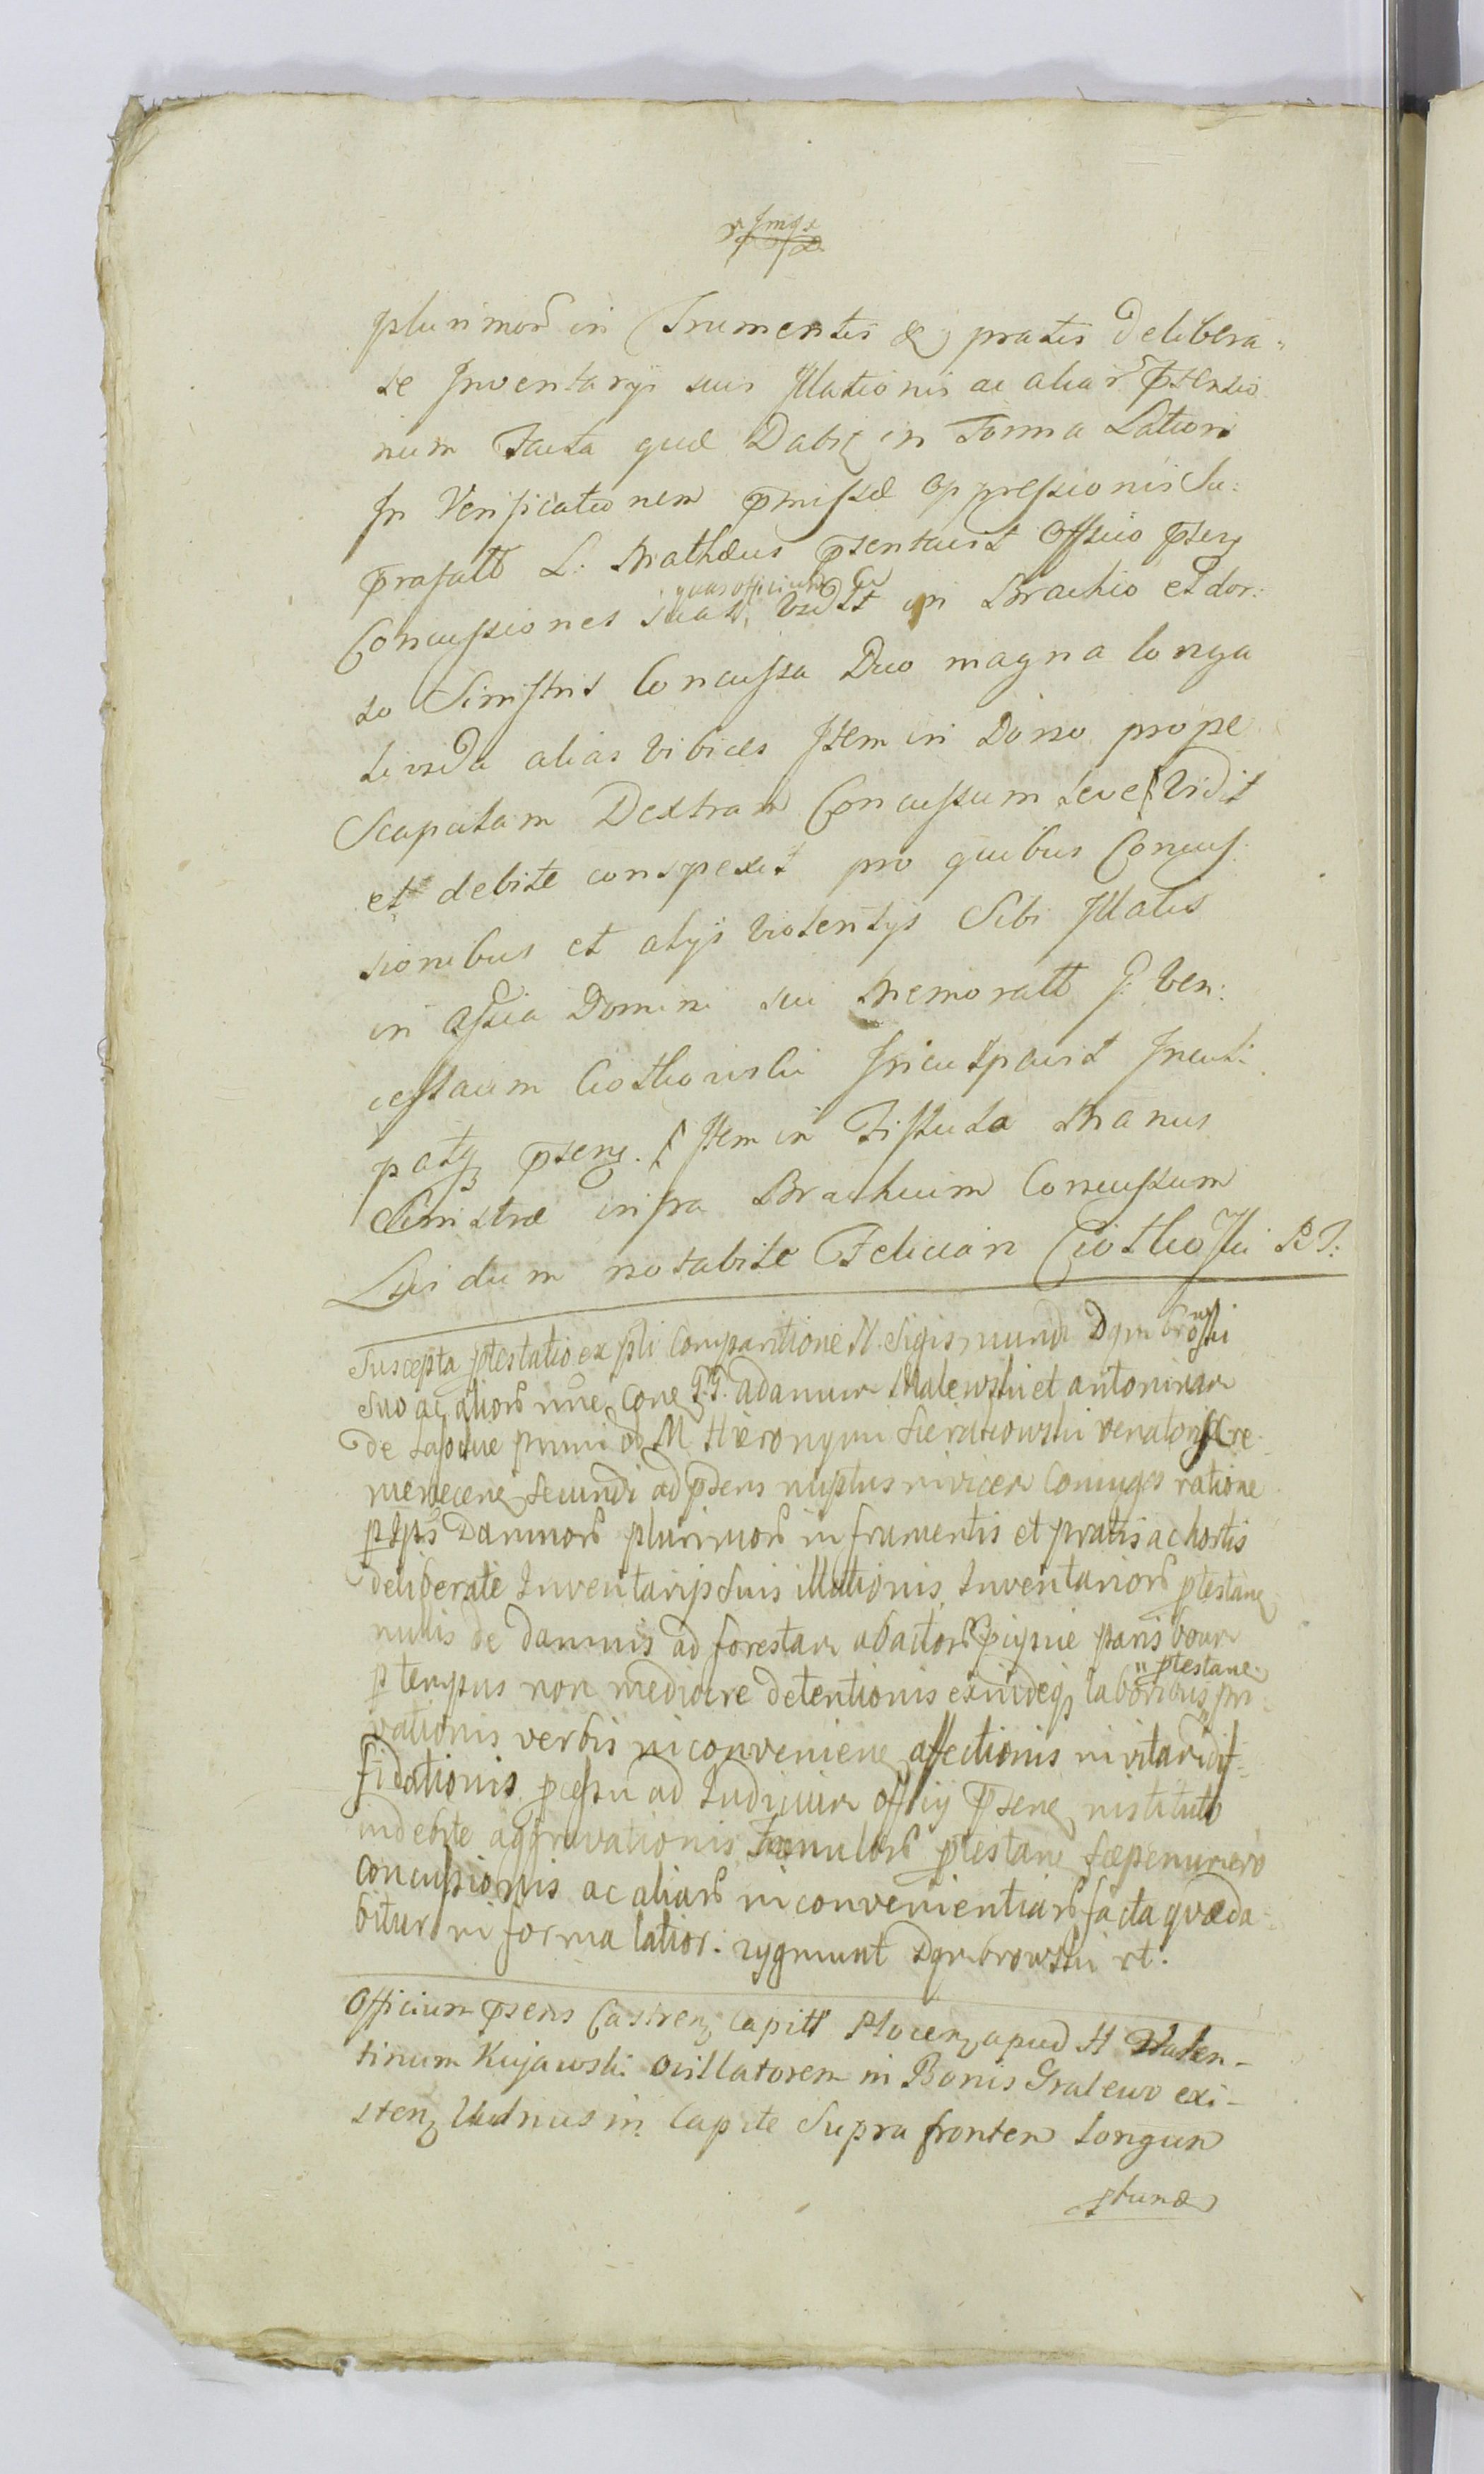 plurimorū in Frumentis et pratis delibera-
te Inventarijs suis Illationis ac aliar̄ p̄tensio
num Facta quæ Dabit in Forma Latiori
In Verificationem p̄missæ oppressionis Su:
præfatt L: Mathæus p̄sentavit Officio p̄sen
Concussiones suas, quas officium vidit in Brachio et dor:
so Sinistris Concussa Duo magna longa
livida alias vibices Item in Dorso prope
Scapulam Dextram Concussum leve vidit
et debite conspexit pro quibus Concus:
sionibus et alijs violentijs Sibi Illatis
in assia Domini sui memoratt G: Ven:
ceslaum Ciotkowski Inculpavit Incul:
patq p̄senq. Item in Fistula Manus
Sinistræ infra Brachium Concussum
Lividum notabile Felician Ciołkoski R T:
Suscepta p̄testatio ex pli comparitione M. Sigismundi Dąmbrowski
suo ac aliorū nnē conq G.G. Adamum Malewski et antoninam
de Lasockie primi od M Hieronymi Sierakowski venatoris Cre-
menecenq secundi ad p̄sens nuptus invicem coniuges ratione
Damnorū plurimorū in frumentis et pratis ac hortis
deliberate Inventarijs suis illationis, Inventariorū p̄testanq
nullis de damnis ad forestam abactorū paris boum
p tempus non mediocre detentionis exindeq laboribus p̄testanq pri-
vationis verbis inconvenienq affectionis in vitam dif-
fidationis pcessu ad Iudicium officij P̄senq instituto
indebite aggravationis famulorū p̄testanq sæpenumero
concussionis ac aliarū inconvenientiarū facta quæ da-
bitur in forma latior: zygmunt Dąmbrowski rt:
Officium P̄sens Castrenq Capitt Plocenq apud H Walen-
tinum Kujawski ovillatorem in Bonis Gralewo exi-
stenq Vulnus in Capite Supra frontem Longum